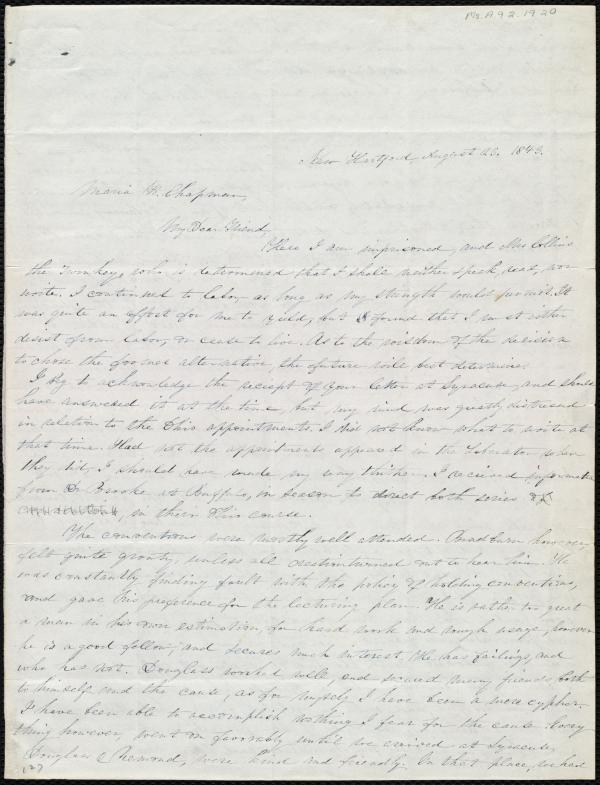 Ms. A. 9.2. 19. 20
New Hartford, August 23. 1843.
Maria W. Chapman,
My Dear Friend,
Here I am imprisoned, and Mrs Collins
the Turnkey, who is determined that I shall neither speak, read, nor
write. I continued to labor as long as my strength would permit. It
was quite an effort for me to yield, but I found that I must either
desist from labor, or cease to live. As to the wisdom of the decision
to chose the former alternative, the future will best determine.
I beg to acknowledge the reciept of your letter at Syracuse, and should
have answered it at the time, but my mind was greatly distressed
in relation to the Ohio appointments. I did not know what to write at
that time. Had not the appointments appeared in the Liberator when
they did, I should have made my way thither. I recieved information
from Dr Brooke at Buffalo, in season to direct both series of
in their Ohio course.
The conventions were mostly well attended. Bradburn however,
felt quite grouty, unless all creation turned out to hear him. He
was constantly finding fault with the policy of holding conventions,
and gave his preference for the lecturing plan. He is rather too great
a man in his own estimation, for hard work and rough usage, however
he is a good fellow, and secures much interest. He has failings, and
who has not. Douglass worked well, and secured many friends, both
to himself and the cause, as for myself I have been a mere cypher.
I have been able to accomplish nothing I fear for the cause. Every
thing however, went on favorably until we arrived at Syracuse,
Douglass & Remond, were kind and friendly. In that place, we have